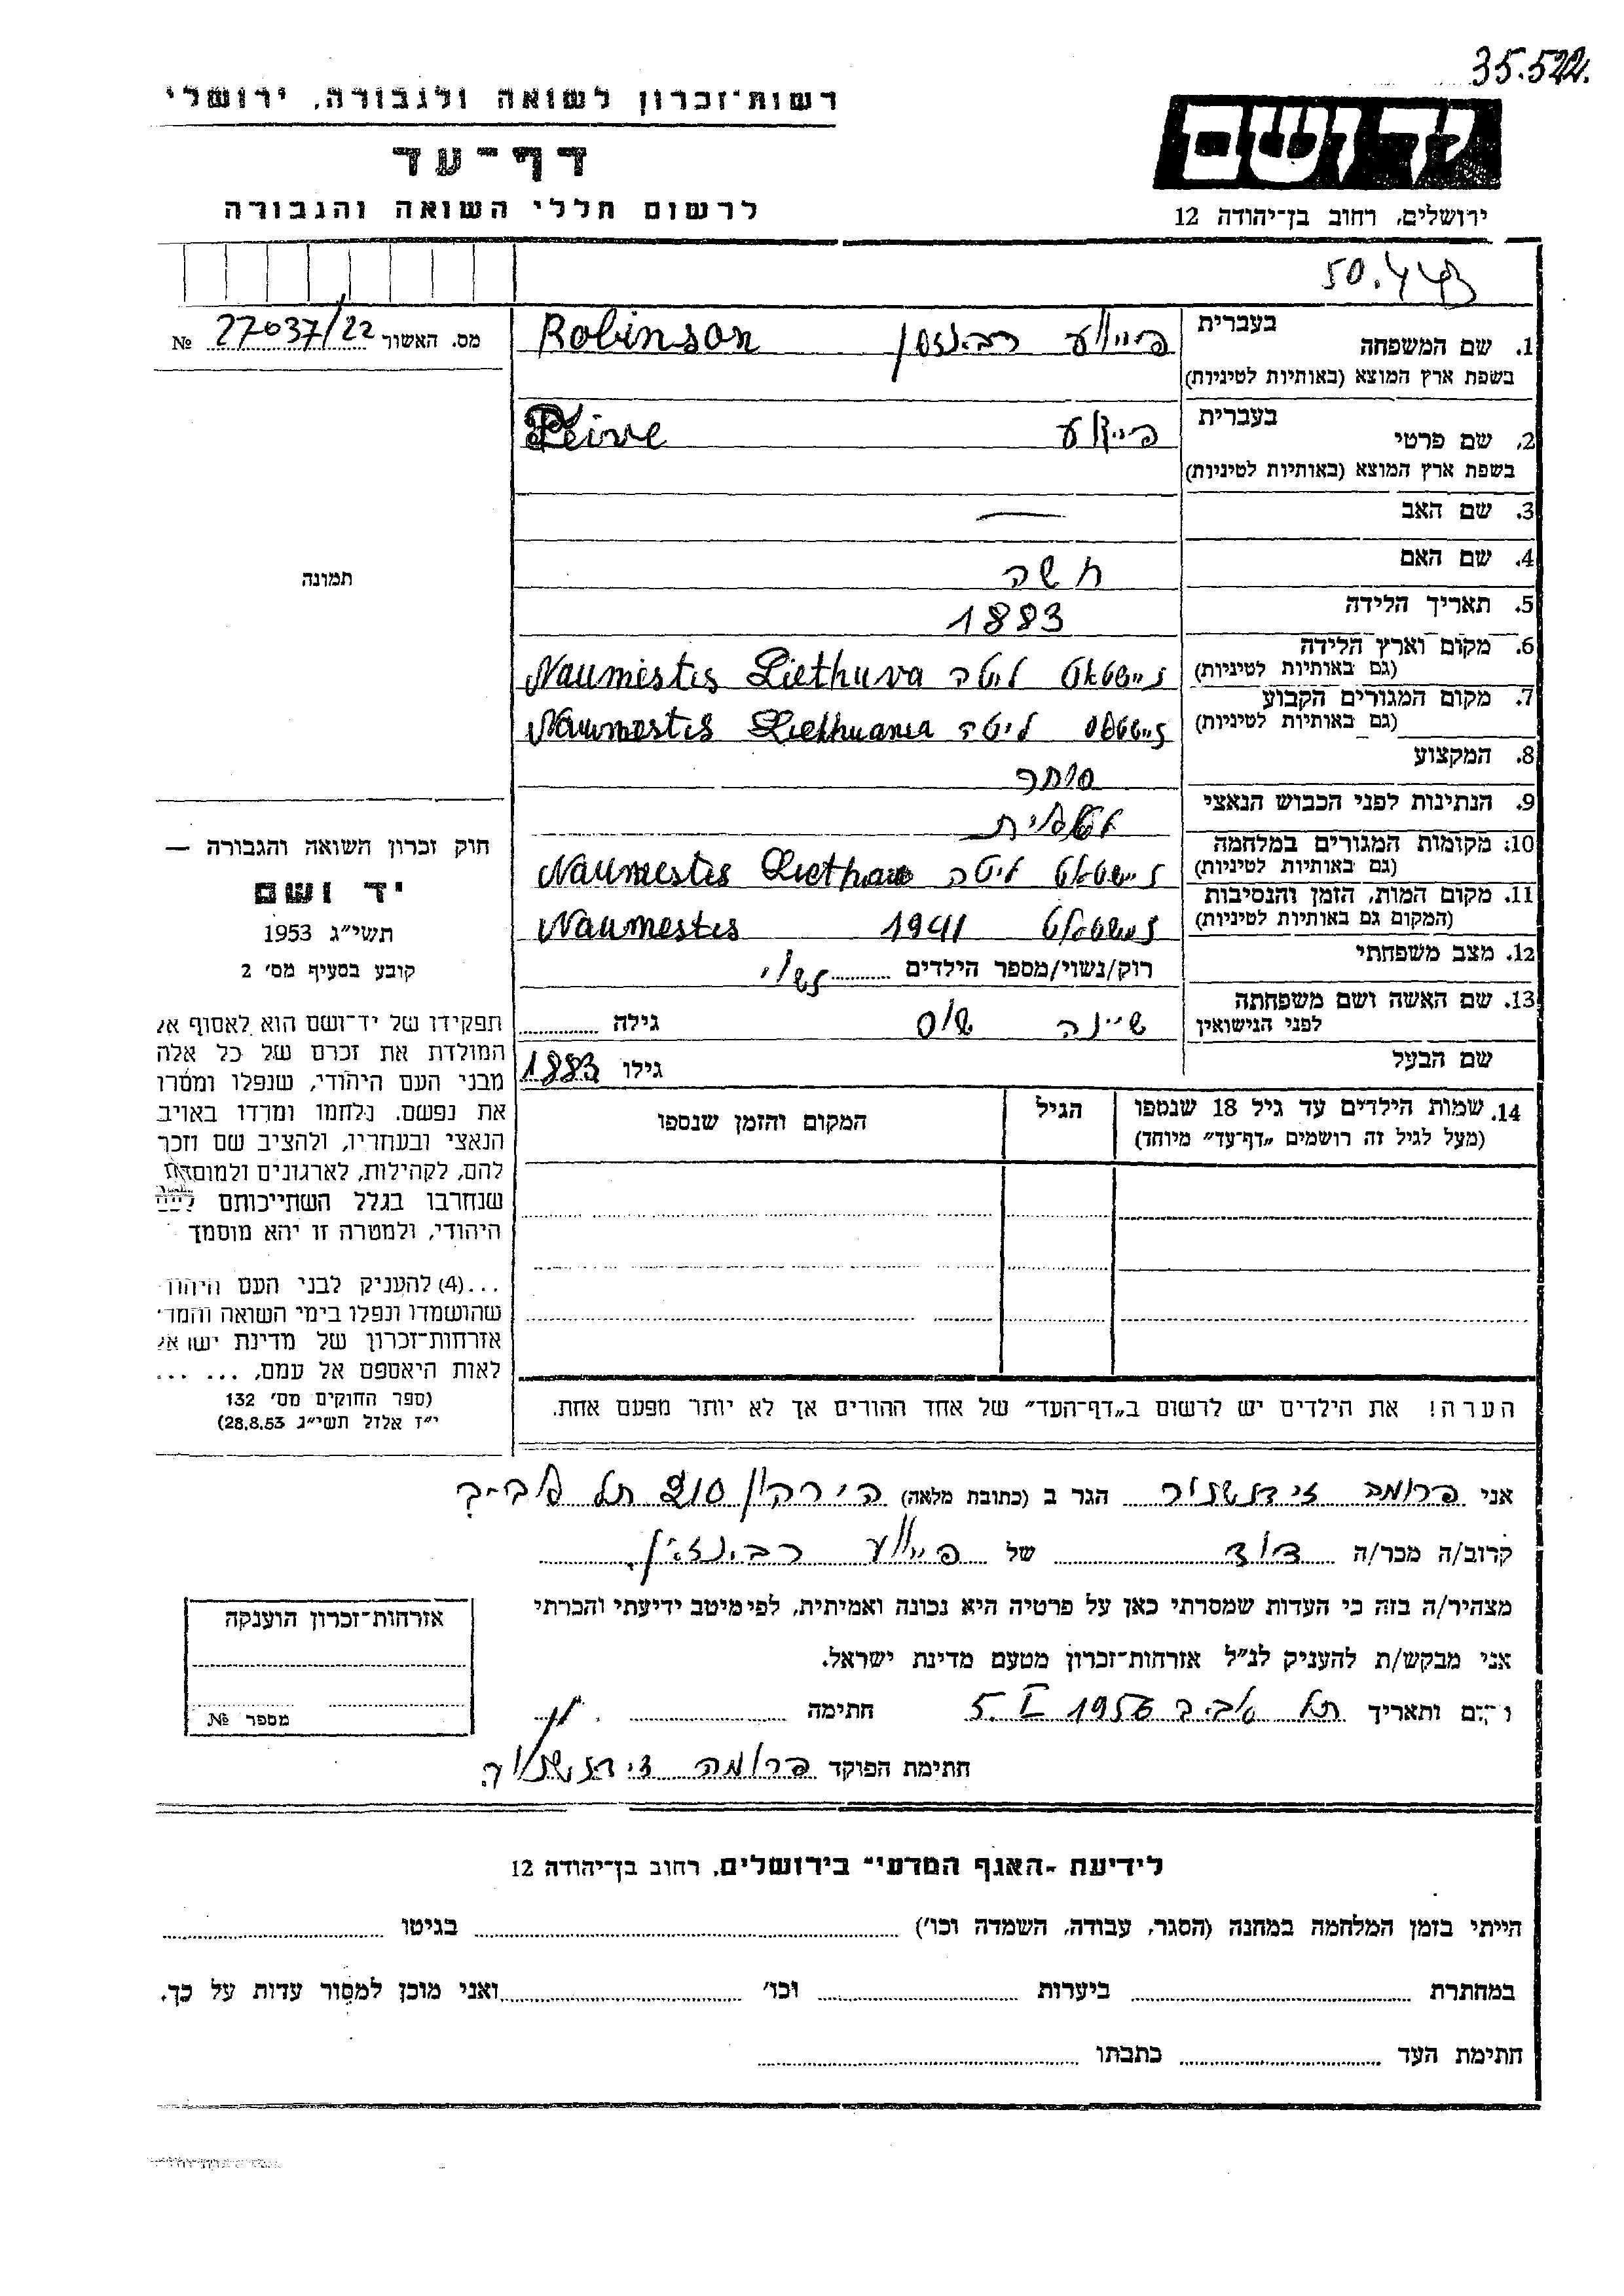 35.522.
רשות־זכרון לשואה ולגבורה, ירושלי
דף־עד
לרשום חללי השואה והגבורה
יד ושם
ירושלים, רחוב בן־יהודה 12
50.443
מס. האשור 27037/22 №
תמונה
חוק זכרון השואה והגבורה —
יד ושם
תשי״ג 1953
קובע בסעיף מס׳ 2
תפקידו של יד־ושם הוא לאסוף אל
המולדת את זכרם של כל אלה
מבני העם היהודי, שנפלו ומסרו
את נפשם. נלחמו ומרדו באויב
הנאצי ובעוזריו, ולהציב שם וזכר
להם, לקהילות, לארגונים ולמוסדות
שנחרבו בגלל השתייכותם לעם
היהודי, ולמטרה זו יהא מוסמך
...(4) להעניק לבני העם היהוד
שהושמדו ונפלו בימי השואה והמר
אזרחות־זכרון של מדינת ישראל
לאות היאספם אל עמם, ... ...
(ספר החוקים מס׳ 132
י״ז אלול תשי״ג 28.8.53)
1. שם המשפחה בעברית פייווע רבינזסון Robinson
בשפת ארץ המוצא (באותיות לטיניות)
2. שם פרטי בעברית פייווע Peive
בשפת ארץ המוצא (באותיות לטיניות)
3. שם האב —
4. שם האם חשה
5. תאריך הלידה 1883
6. מקום וארץ הלידה (גם באותיות לטיניות) ניישטאט ליטה Naumestis Liethuva
7. מקום המגורים הקבוע (גם באותיות לטיניות) ניישטאט ליטה Naumestis Liethuania
8. המקצוע סוחר
9. הנתינות לפני הכבוש הנאצי
10. מקומות המגורים במלחמה (גם באותיות לטיניות) ניישטאט ליטה Naumestis
11. מקום המות, הזמן והנסיבות (המקום גם באותיות לטיניות) ניישטאט 1941 Naumestis
12. מצב משפחתי רוק/נשוי/מספר הילדים נשוי
13. שם האשה ושם משפחתה לפני הנישואין שיינה גילה
שם הבעל גילו 1883
14. שמות הילדים עד גיל 18 שנספו הגיל המקום והזמן שנספו
(מעל לגיל זה רושמים „דף־עד״ מיוחד)
הערה! את הילדים יש לרשום ב„דף־העד״ של אחד ההורים אך לא יותר מפעם אחת.
אני פרומה הגר ב (כתובת מלאה) הירקון תל אביב
קרוב/ה מכר/ה דוד של פייווע רבינזון
מצהיר/ה בזה כי העדות שמסרתי כאן על פרטיה היא נכונה ואמיתית, לפי מיטב ידיעתי והכרתי
אני מבקש/ת להעניק לנ״ל אזרחות־זכרון מטעם מדינת ישראל.
ום ותאריך תל אביב 5.I 1956 חתימה
חתימת הפוקד פרומה
אזרחות־זכרון הוענקה
מספר №
לידיעת ־האגף המדעי״ בירושלים, רחוב בן־יהודה 12
הייתי בזמן המלחמה במחנה (הסגר, עבודה, השמדה וכו׳) בגיטו
במחתרת ביערות וכו׳ ואני מוכן למסור עדות על כך.
חתימת העד כתבתו